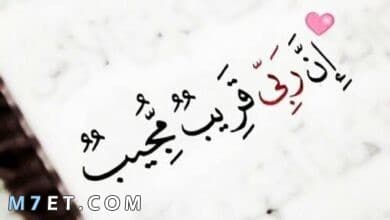 إِنَّ رَبِّي قَرِيبٌ مُجِيبٌ
M7ET.COM